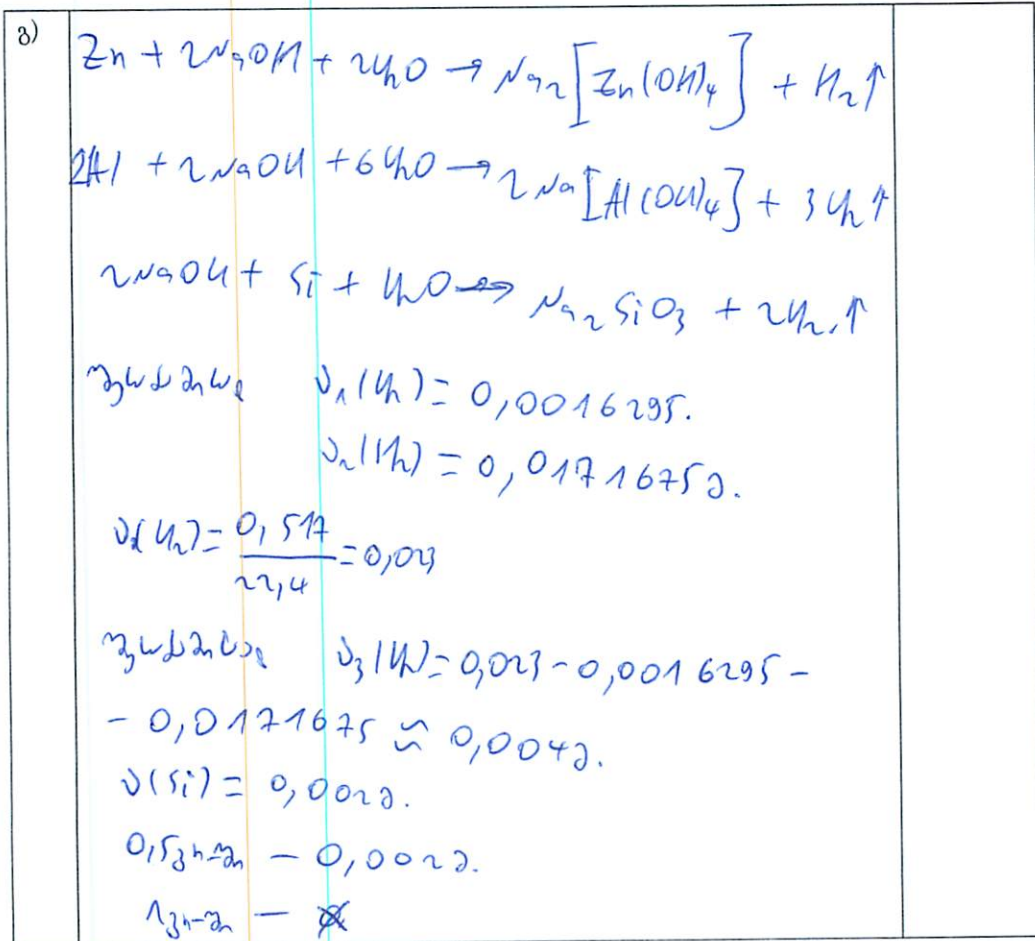 გ)
Zn + 2NaOH + 2H2O → Na2[Zn(OH)4] + H2↑
2Al + 2NaOH + 6H2O → 2Na[Al(OH)4] + 3H2↑
2NaOH + Si + H2O → Na2SiO3 + 2H2↑
ν1(H2) = 0,0016295.
ν2(H2) = 0,0171675მ.
ν(H2) = 0,517/22,4 = 0,023
ν3(H2) = 0,023 - 0,0016295 -
- 0,0171675 ≈ 0,004მ.
ν(Si) = 0,002მ.
0,5გ-ში - 0,002მ.
1გ-ში -